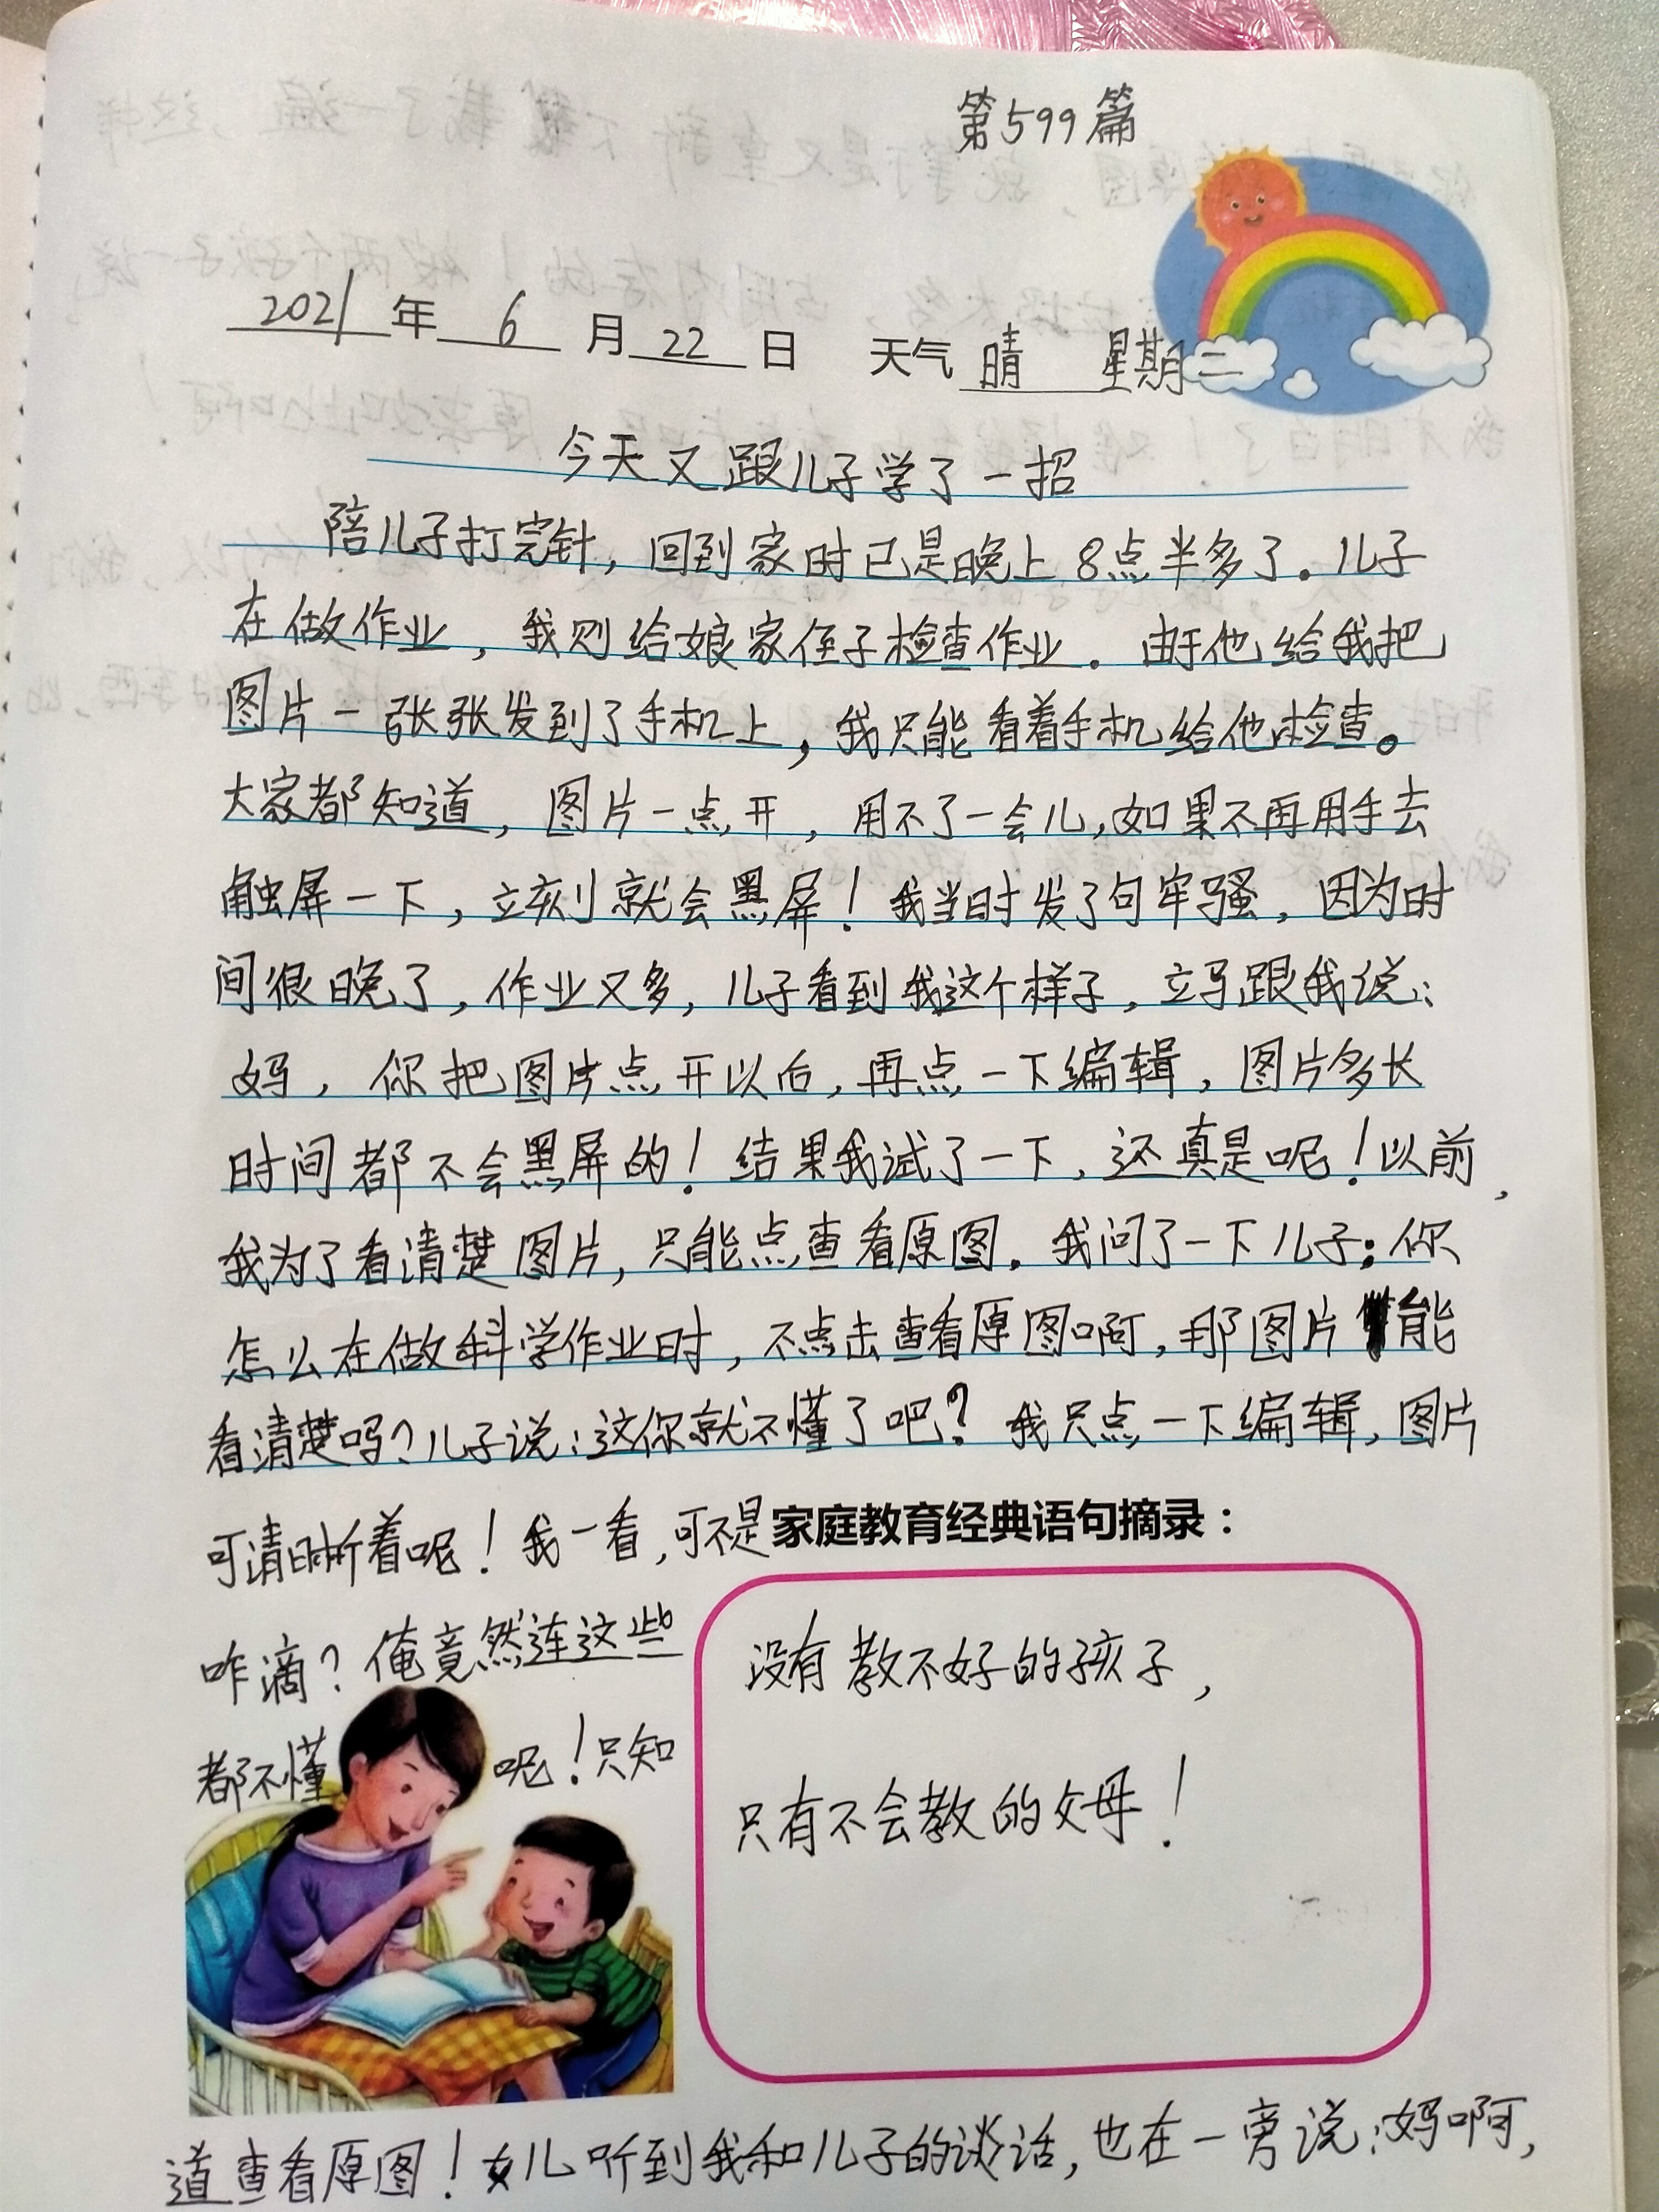 第599篇
2021年6月22日 天气晴 星期二
今天又跟儿子学了一招
陪儿子打完针，回到家时已是晚上8点半多了。儿子
在做作业，我则给娘家侄子检查作业。由于他给我把
图片一张张发到了手机上，我只能看着手机给他检查。
大家都知道，图片一点开，用不了一会儿，如果不再用手去
触屏一下，立刻就会黑屏！我当时发了句牢骚，因为时
间很晚了，作业又多，儿子看到我这个样子，立马跟我说：
妈，你把图片点开以后，再点一下编辑，图片多长
时间都不会黑屏的！结果我试了一下，还真是呢！以前，
我为了看清楚图片，只能点查看原图。我问了一下儿子：你
怎么在做科学作业时，不点击查看原图啊，那图片能
看清楚吗？儿子说：这你就不懂了吧？我只点一下编辑，图片
可清晰着呢！我一看，可不是
咋滴？俺竟然连这些
都不懂呢！只知
家庭教育经典语句摘录：
没有教不好的孩子，
只有不会教的父母！
道查看原图！女儿听到我和儿子的谈话，也在一旁说：妈啊，